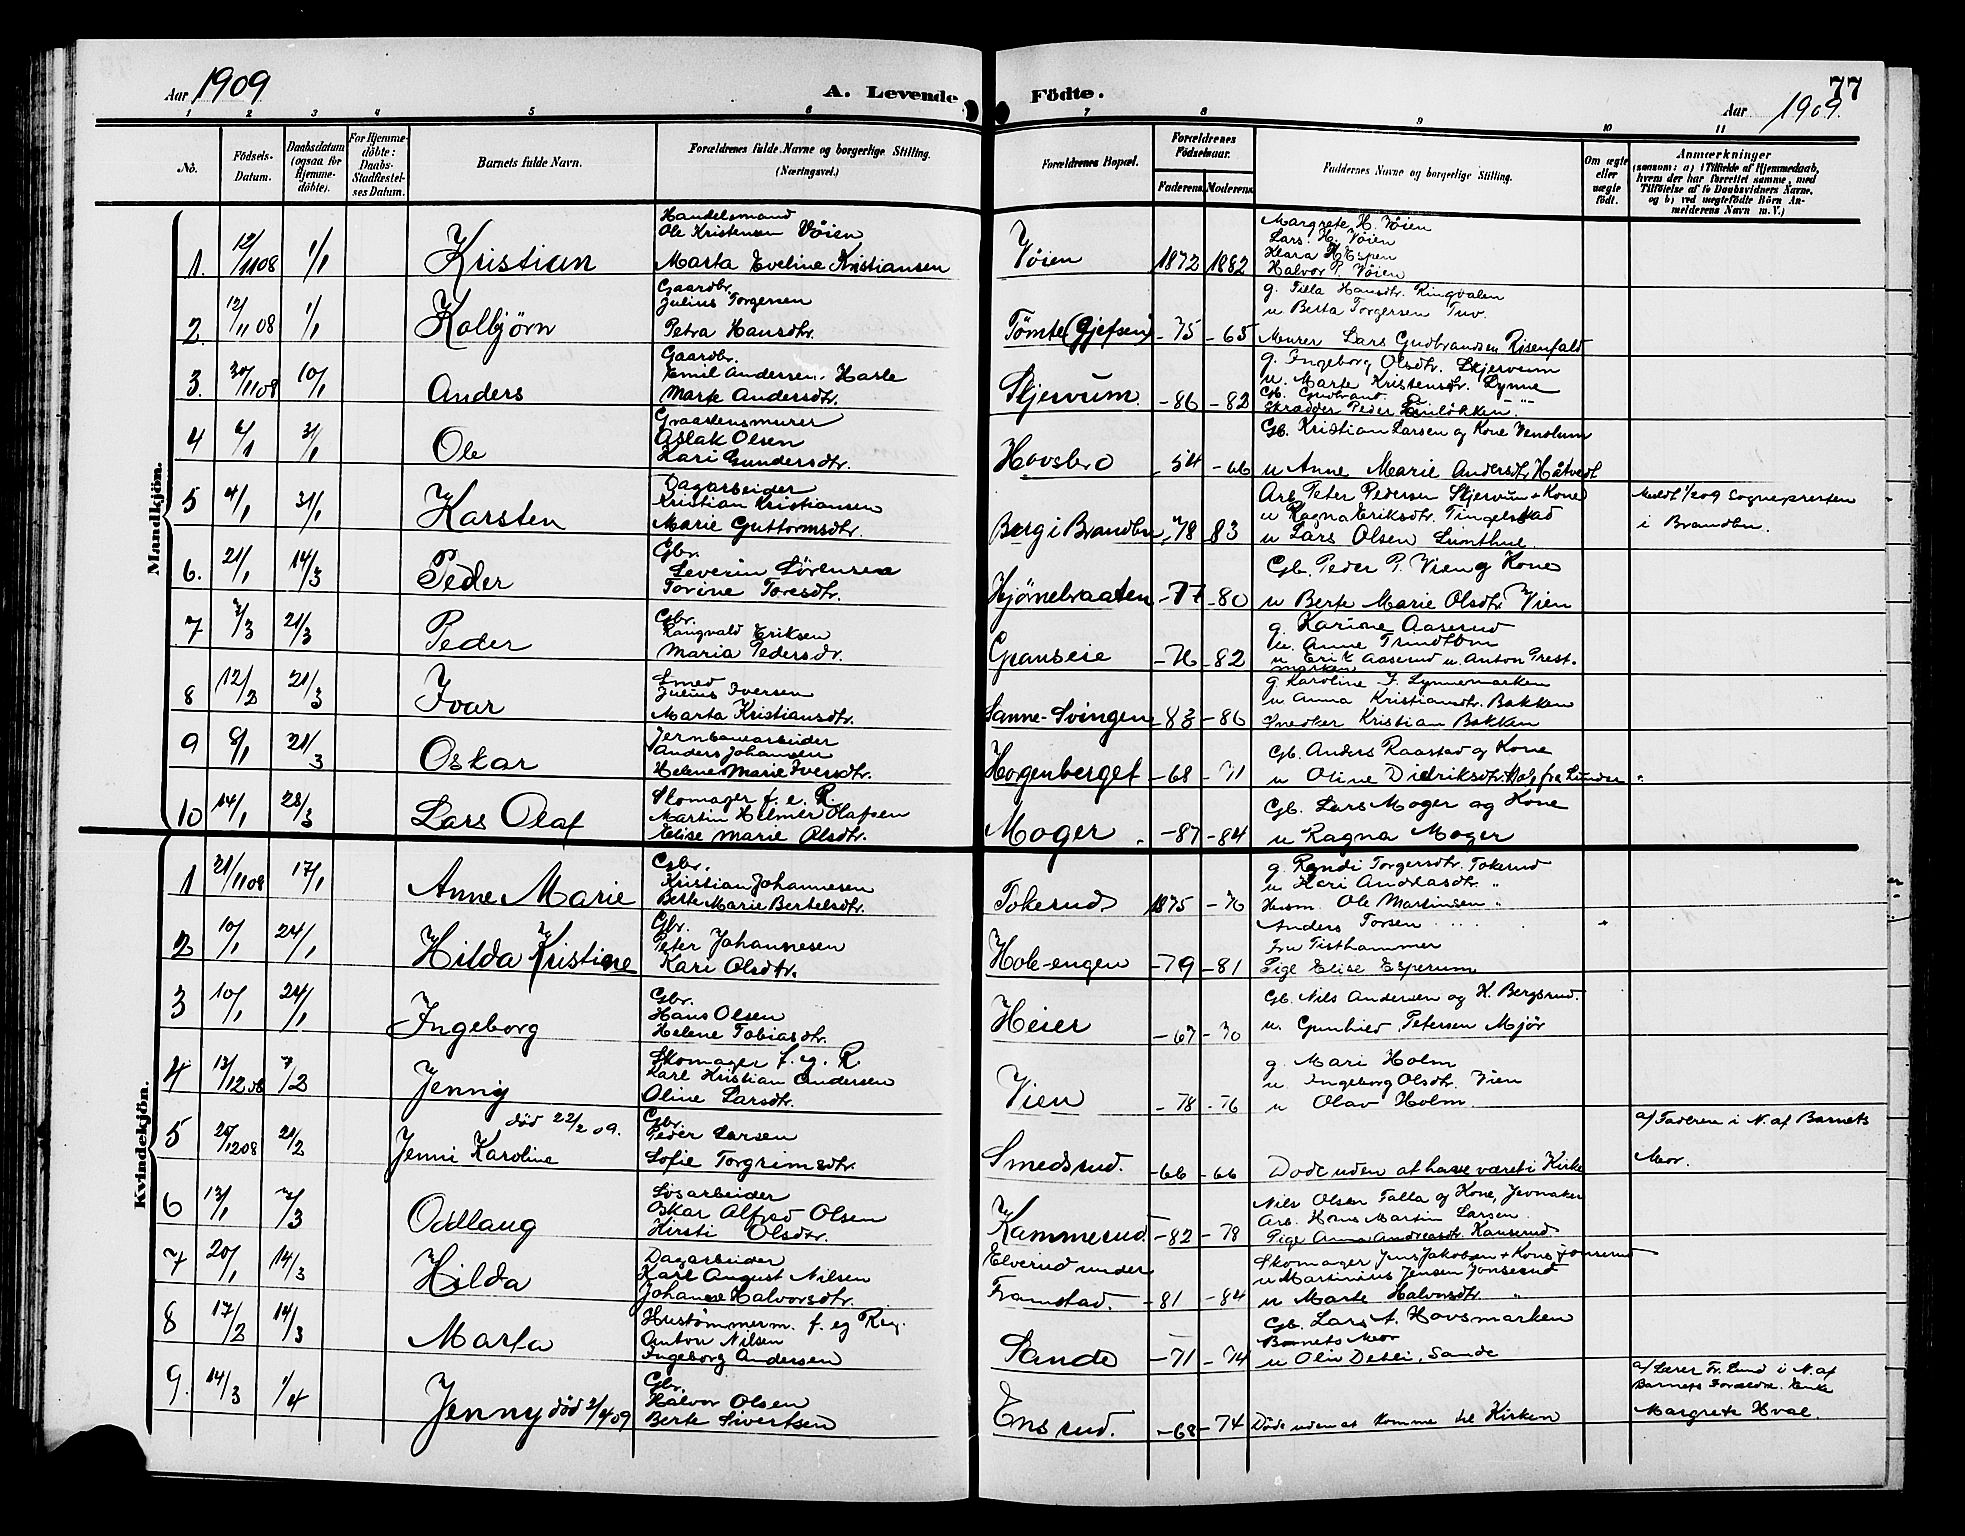 Aar 1909
A. Levende
Födte.
77
Aar 1909.
1 2 3 4 5 6 7 8 9 10 11
No.
Födsels-Datum.
Daabsdatum (ogsaa for Hjemmedöbte).
For Hjemmedöbte: Daabs-Stadfæstelses Datum.
Barnets fulde Navn.
Forældrenes fulde Navne og borgerlige Stilling. (Næringsvei.)
Forældrenes Bopæl.
Forældrenes Födselsaar.
Faderens. Moderens.
Faddernes Navne og borgerlige Stilling.
Om ægte eller uægte födt.
Anmærkninger
(saasom: a) i Tilfælde af Hjemmedaab, hvem der har forrettet samme, med Tilföielse af to Daabsvidners Navne, og b) ved uægtefödte Börn Anmelderens Navn m. V.)
Mandkjön.
1. 12/11 08 1/1 Kristian
Handelsmand
Ole Kristensen Vøien
Marta Eveline Kristiansen
Vøien 1872 1882
Margrete H. Vøien
Lars H. Vøien
Klara H. Espen
Halvor P. Vøien
2. 12/11 08 1/1 Kolbjørn
Gaardbr.
Julius Torgersen
Petra Hansdtr.
Tømte (Gjefsen) -75 -65
g. Tilla Hansdtr. Ringvalen
u Berta Torgersen Tuv.
Murer Lars Gudbrandsen Risenfald
3. 30/11 08 10/1 Anders
Gaardbr.
Emil Andersen Hasle
Marte Andersdtr.
Skjervum -86 -82
g. Ingeborg Olsdtr. Skjervum
u. Marte Kristensdtr. Lynne
Skradder Peder
4 6/1 31/1 Ole
Graastensmurer
Aslak Olsen
Kari Gundersdtr.
Hovsbro -54 -66
Gb. Kristian Larsen og Kone Venolum
u Anne Marie Andersdtr. Håtvedt
5 4/1 31/1 Karsten
Dagarbeider
Kristian Kristiansen
Marie Guttormsdtr.
Berg i Brandbu -78 83
Arb. Peter Pedersen Skjervum + Kone
u Ragna Eriksdtr. Tingelstad
u Lars Olsen
Meldt 1/2 09 Sognepresten
i Brandbu.
6. 21/1 14/3 Peder
Gbr.
Severin Sørensen
Torine Toresdtr.
Hjørnebraaten -77 -80
Gb. Peder P. Vien og Kone
u Berte Marie Olsdtr. Vien
7 7/3 21/3 Peder
Gbr.
Rangvald Eriksen
Maria Pedersdr.
Granseie -76 -82
g. Karine Aaserud
u. Anne
u Erik Aaserud u. Anton Prest-
marken
8 12/2 21/3 Ivar
Smed
Julius Iversen
Marta Kristiansdtr.
Sanne-Svingen -83 -86
g Karoline J. Lynnemarken
u Anna Kristiansdtr. Bakken
Snedker Kristian Bakken
9 8/1 21/3 Oskar
Jernbanearbeider
Anders Johansen
Helene Marie Iversdtr.
Horgenberget -68 -71
Gb. Anders Raastad og Kone
u Oline Didriksdtr.
10 14/1 28/3 Lars Olaf
Skomager f. e. R.
Martin Helmer Olafsen
Elise Marie Olsdtr.
Moger -87 -84
Gb. Lars Moger og Kone
u Ragna Moger
Kvindekjön.
1 21/11 08 17/1 Anne Marie
Gbr.
Kristian Johannesen
Berte Marie Bertelsdtr.
Tokerud 1875 -76
g. Torgersdtr. Tokerud
u Andreasdtr. "
Husm. Ole Martinsen "
2 10/1 24/1 Hilda Kristine
Gbr.
Peter Johannesen
Kari Olsdtr.
Hole-engen -79 -81
Anders Torsen
Fru Tisthammer
Pige Elise Esperum
3 10/1 24/1 Ingeborg
Gbr.
Hans Olsen
Helene Tobiasdtr.
Heier -67 -70
Gb. Nils Andersen og K. Bergsrud.
u. Gunhild Petersen Mjør
4 13/12 08 7/2 Jenny
Skomager f. eg. R
Karl Kristian Andersen
Oline Larsdtr.
Vien -78 -76
g. Mari Holm
u Ingeborg Olsdtr. Vien
u Olav Holm.
5 25/12 08 21/2 Jenni Karoline
død 22/2 09.
Gbr.
Peder Larsen
Sofie Torgrimsdtr.
Smedsrud. -66 -66
Døde uden at have været i Kirke
a/ Faderen i N. af Barnets
Mor.
6 13/1 7/3 Oddlaug
Løsarbeider
Oskar Alfred Olsen
Kirsti Olsdtr.
Kammerud. -82 -78
Nils Olsen Falla og Kone, Jevnaker
Arb. Hans Martin Larsen
Pige Anna Andreasdtr.
7 20/1 14/3 Hilda
Dagarbeider
Karl August Nilsen
Johanne Halvorsdtr.
Elverud under
Framstad. -81 -84
Skomager Jens Jakobsen + Kone Jonserud
u Martinius Jensen Jonserud
u Marte Halvorsdtr. "
8 17/2 14/3 Marta
Hustømmerm. f. eg Reg.
Anton Nilsen
Ingeborg Andersen
Sande -71 -74
Gb. Lars A. Hovsmarken
Barnets Mor
u Oliv Detli, Sande
9. 14/3 1/4 Jenny død 2/4 09
Gbr.
Halvor Olsen
Berte Sivertsen
Ensrud. -68 -74
Døde uden at komme til Kirken
a/ Lærer Fr. Lund i N. af
Barnets Forældre. Enke
Margrete Hval.